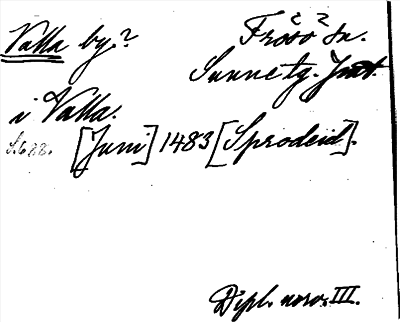 Valla by? Frösö sn.
Sunne tg. Jmt.
i Valla.
S. 688. [Juni] 1483 [Sprodeid].
Dipl. norv. III.